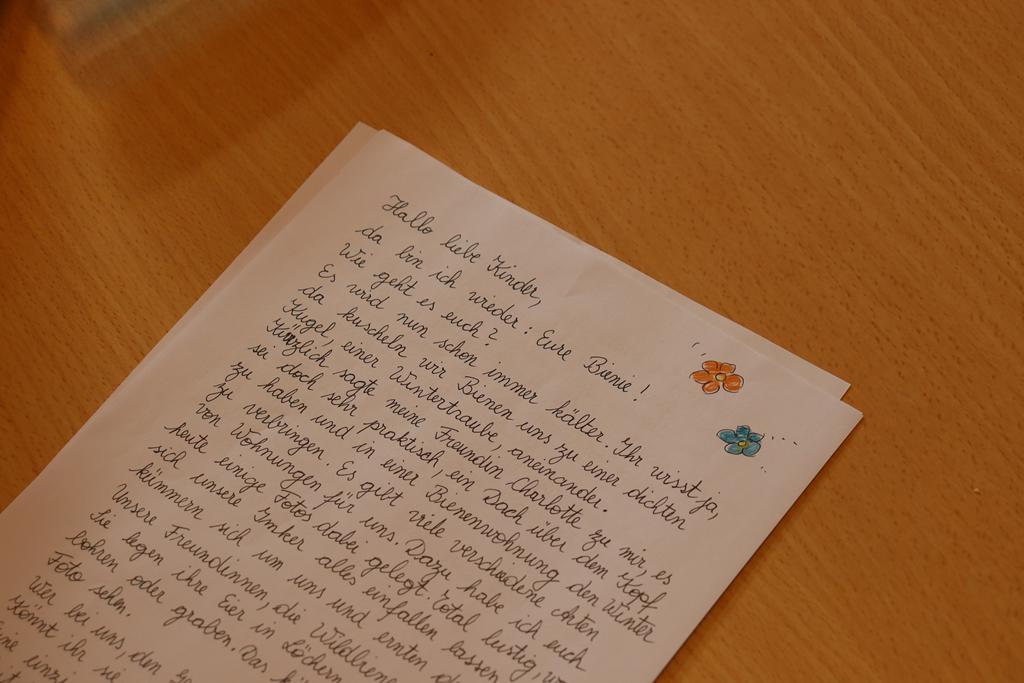 Hallo liebe Kinder,
da bin ich wieder: Eure Bienie!
Wie geht es euch?
Es wird nun schon immer kälter. Ihr wisst ja,
da kuscheln wir Bienen uns zu einer dichten
Kugel, einer Wintertraube, aneinander.
Kürzlich sagte meine Freundin Charlotte zu mir, es
sei doch sehr praktisch, ein Dach über dem Kopf
zu haben und in einer Bienenwohnung den Winter
zu verbringen. Es gibt viele verschiedene Arten
von Wohnungen für uns. Dazu habe ich euch
heute einige Fotos dabei gelegt. Total lustig,
sich unsere Imker alles einfallen lassen
kümmern sich um uns und ernten
Unsere Freundinnen, die
Sie legen ihre Eier in Löchern
bohren oder graben. Das
Foto sehen.
Wer bei uns, den
Könnt ihr sie